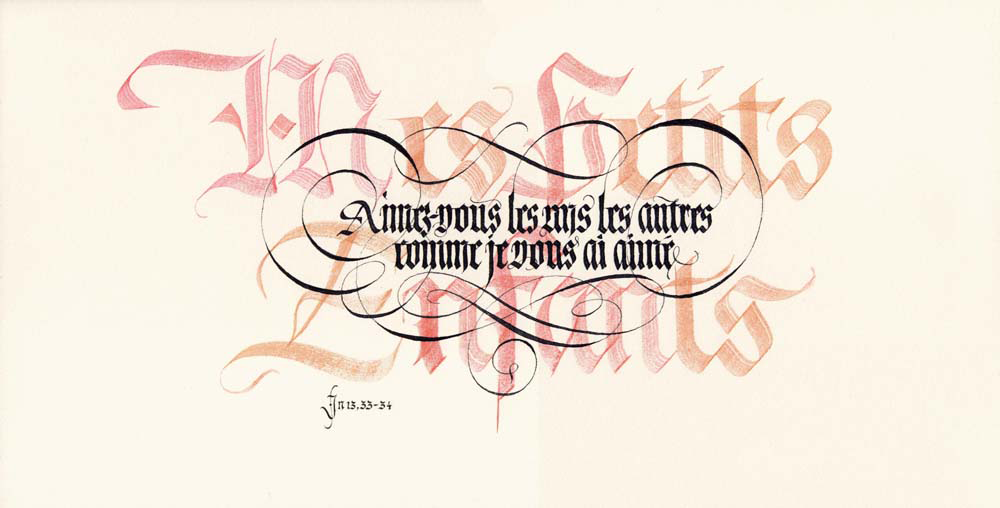 Mes Petits
Aimez-vous les uns les autres
comme je vous ai aimé
Enfants
Jn 13, 33-34